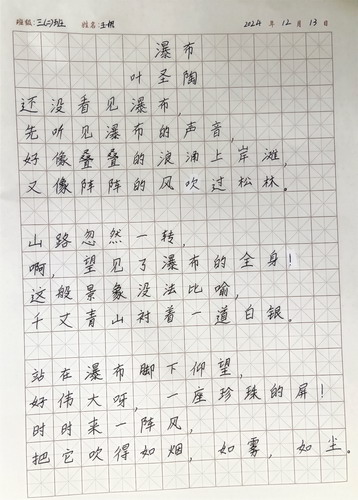 班级:三(二)班 姓名:王 2024 年 12 月 13 日
瀑布
叶圣陶
还没看见瀑布,
先听见瀑布的声音,
好像叠叠的浪涌上岸滩,
又像阵阵的风吹过松林。
山路忽然一转,
啊,望见了瀑布的全身!
这般景象没法比喻,
千丈青山衬着一道白银。
站在瀑布脚下仰望,
好伟大呀,一座珍珠的屏!
时时来一阵风,
把它吹得如烟,如雾,如尘。